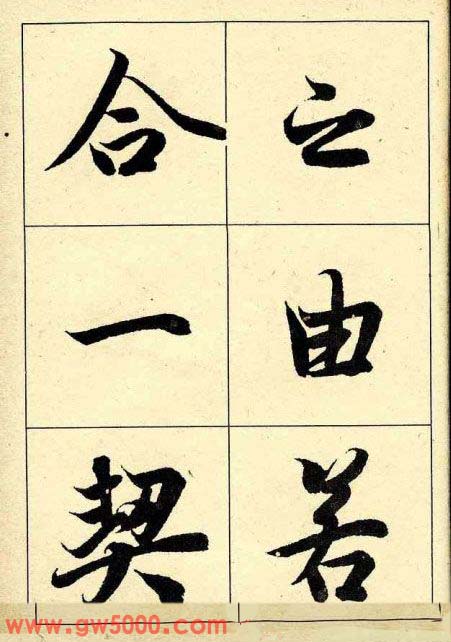 之由若
合一契
www.gw5000.com